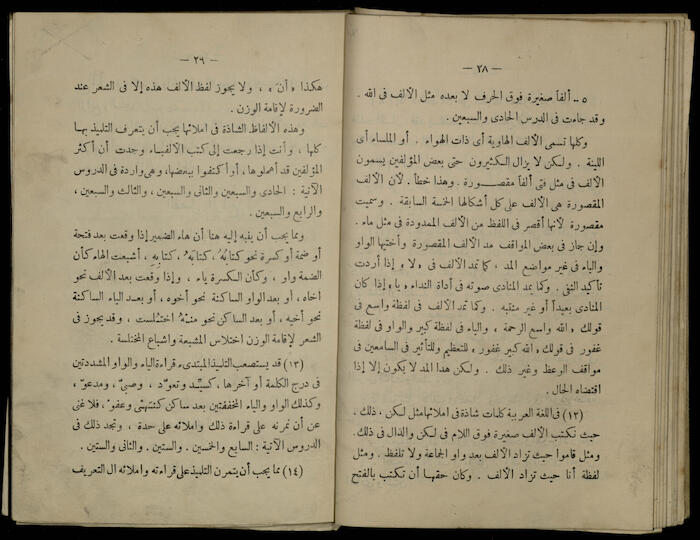 — ٢٨ —
٥ - ألفاً صغيرة فوق الحرف لا بعده مثل الألف فى الله .
وقد جاءت فى الدرس الحادى والسبعين .
وكلها تسمى الألف الهاوية أى ذات الهواء . أو الملساء أى
اللينة . ولكن لا يزال الكثيرون حتى بعض المؤلفين يسمون
الألف فى مثل فتى ألفاً مقصورة . وهذا خطأ . لأن الألف
المقصورة هى الألف على كل أشكالها الخمسة السابقة . وسميت
مقصورة لأنها أقصر فى اللفظ من الألف الممدودة فى مثل ماء .
وإن جاز فى بعض المواقف مد الألف المقصورة وأختيها الواو
والياء فى غير مواضع المد ، كما تمد الألف فى « لا » إذا أردت
تأكيد النفى . وكما يمد المنادى صوته فى أداة النداء « يا » إذا كان
المنادى بعيداً أو غير منتبه . وكما تمد الألف فى لفظة واسع فى
قولك « الله واسع الرحمة » والياء فى لفظة كبير والواو فى لفظة
غفور فى قولك « الله كبير غفور » للتعظيم وللتأثير فى السامعين فى
مواقف الوعظ وغير ذلك . ولكن هذا المد لا يكون إلا إذا
اقتضاه الحال .
(١٢) فى اللغة العربية كلمات شاذة فى املائها مثل لكن ، ذلك ،
حيث تكتب الألف صغيرة فوق اللام فى لكن والذال فى ذلك.
ومثل قاموا حيث تزاد الألف بعد واو الجماعة ولا تلفظ . ومثل
لفظة أنا حيث تزاد الألف . وكان حقها أن تكتب بالفتح
— ٢٩ —
هكذا « أنَ » ، ولا يجوز لفظ الألف هذه إلا فى الشعر عند
الضرورة لإقامة الوزن .
وهذه الألفاظ الشاذة فى املائها يجب أن يتعرف التلميذ بها
كلها ، وأنت إذا رجعت إلى كتب الألفباء وجدت أن أكثر
المؤلفين قد أهملوها ، أو أكتفوا ببعضها، وهى واردة فى الدروس
الآتية : الحادى والسبعين والثانى والسبعين ، والثالث والسبعين ،
والرابع والسبعين .
ومما يجب أن ينبه إليه هنا أن هاء الضمير إذا وقعت بعد فتحة
أو ضمة أو كسرة نحو كتابَهُ ، كتابُهُ ، كتابِهِ ، أشبعت الهاء كأن
الضمة واو ، وكأن الكسرة ياء ، وإذا وقعت بعد الألف نحو
اخاه ، أو بعد الواو الساكنة نحو أخوه ، أو بعد الياء الساكنة
نحو أخيه ، أو بعد الساكن نحو منْهُ اختُلست ، وقد يجوز فى
الشعر لإقامة الوزن اختلاس المشبعة واشباع المختلسة .
(١٣) قد يستصعب التلميذ المبتدىء قراءة الياء والواو المشددتين
فى درج الكلمة أو آخرها ، كسيّد وتعوّد ، وصبيّ ، ومدعوّ ،
وكذلك الواو والياء المخففتين بعد ساكن كتنتهِىْ وعفْو ، فلا غنى
عن أن تمرنه على قراءة ذلك واملائه على حدة ، وتجد ذلك فى
الدروس الآتية : السابع والخمسين . والستين . والثانى والستين .
(١٤) مما يجب أن يتمرن التلميذ على قراءته واملائه ال التعريف